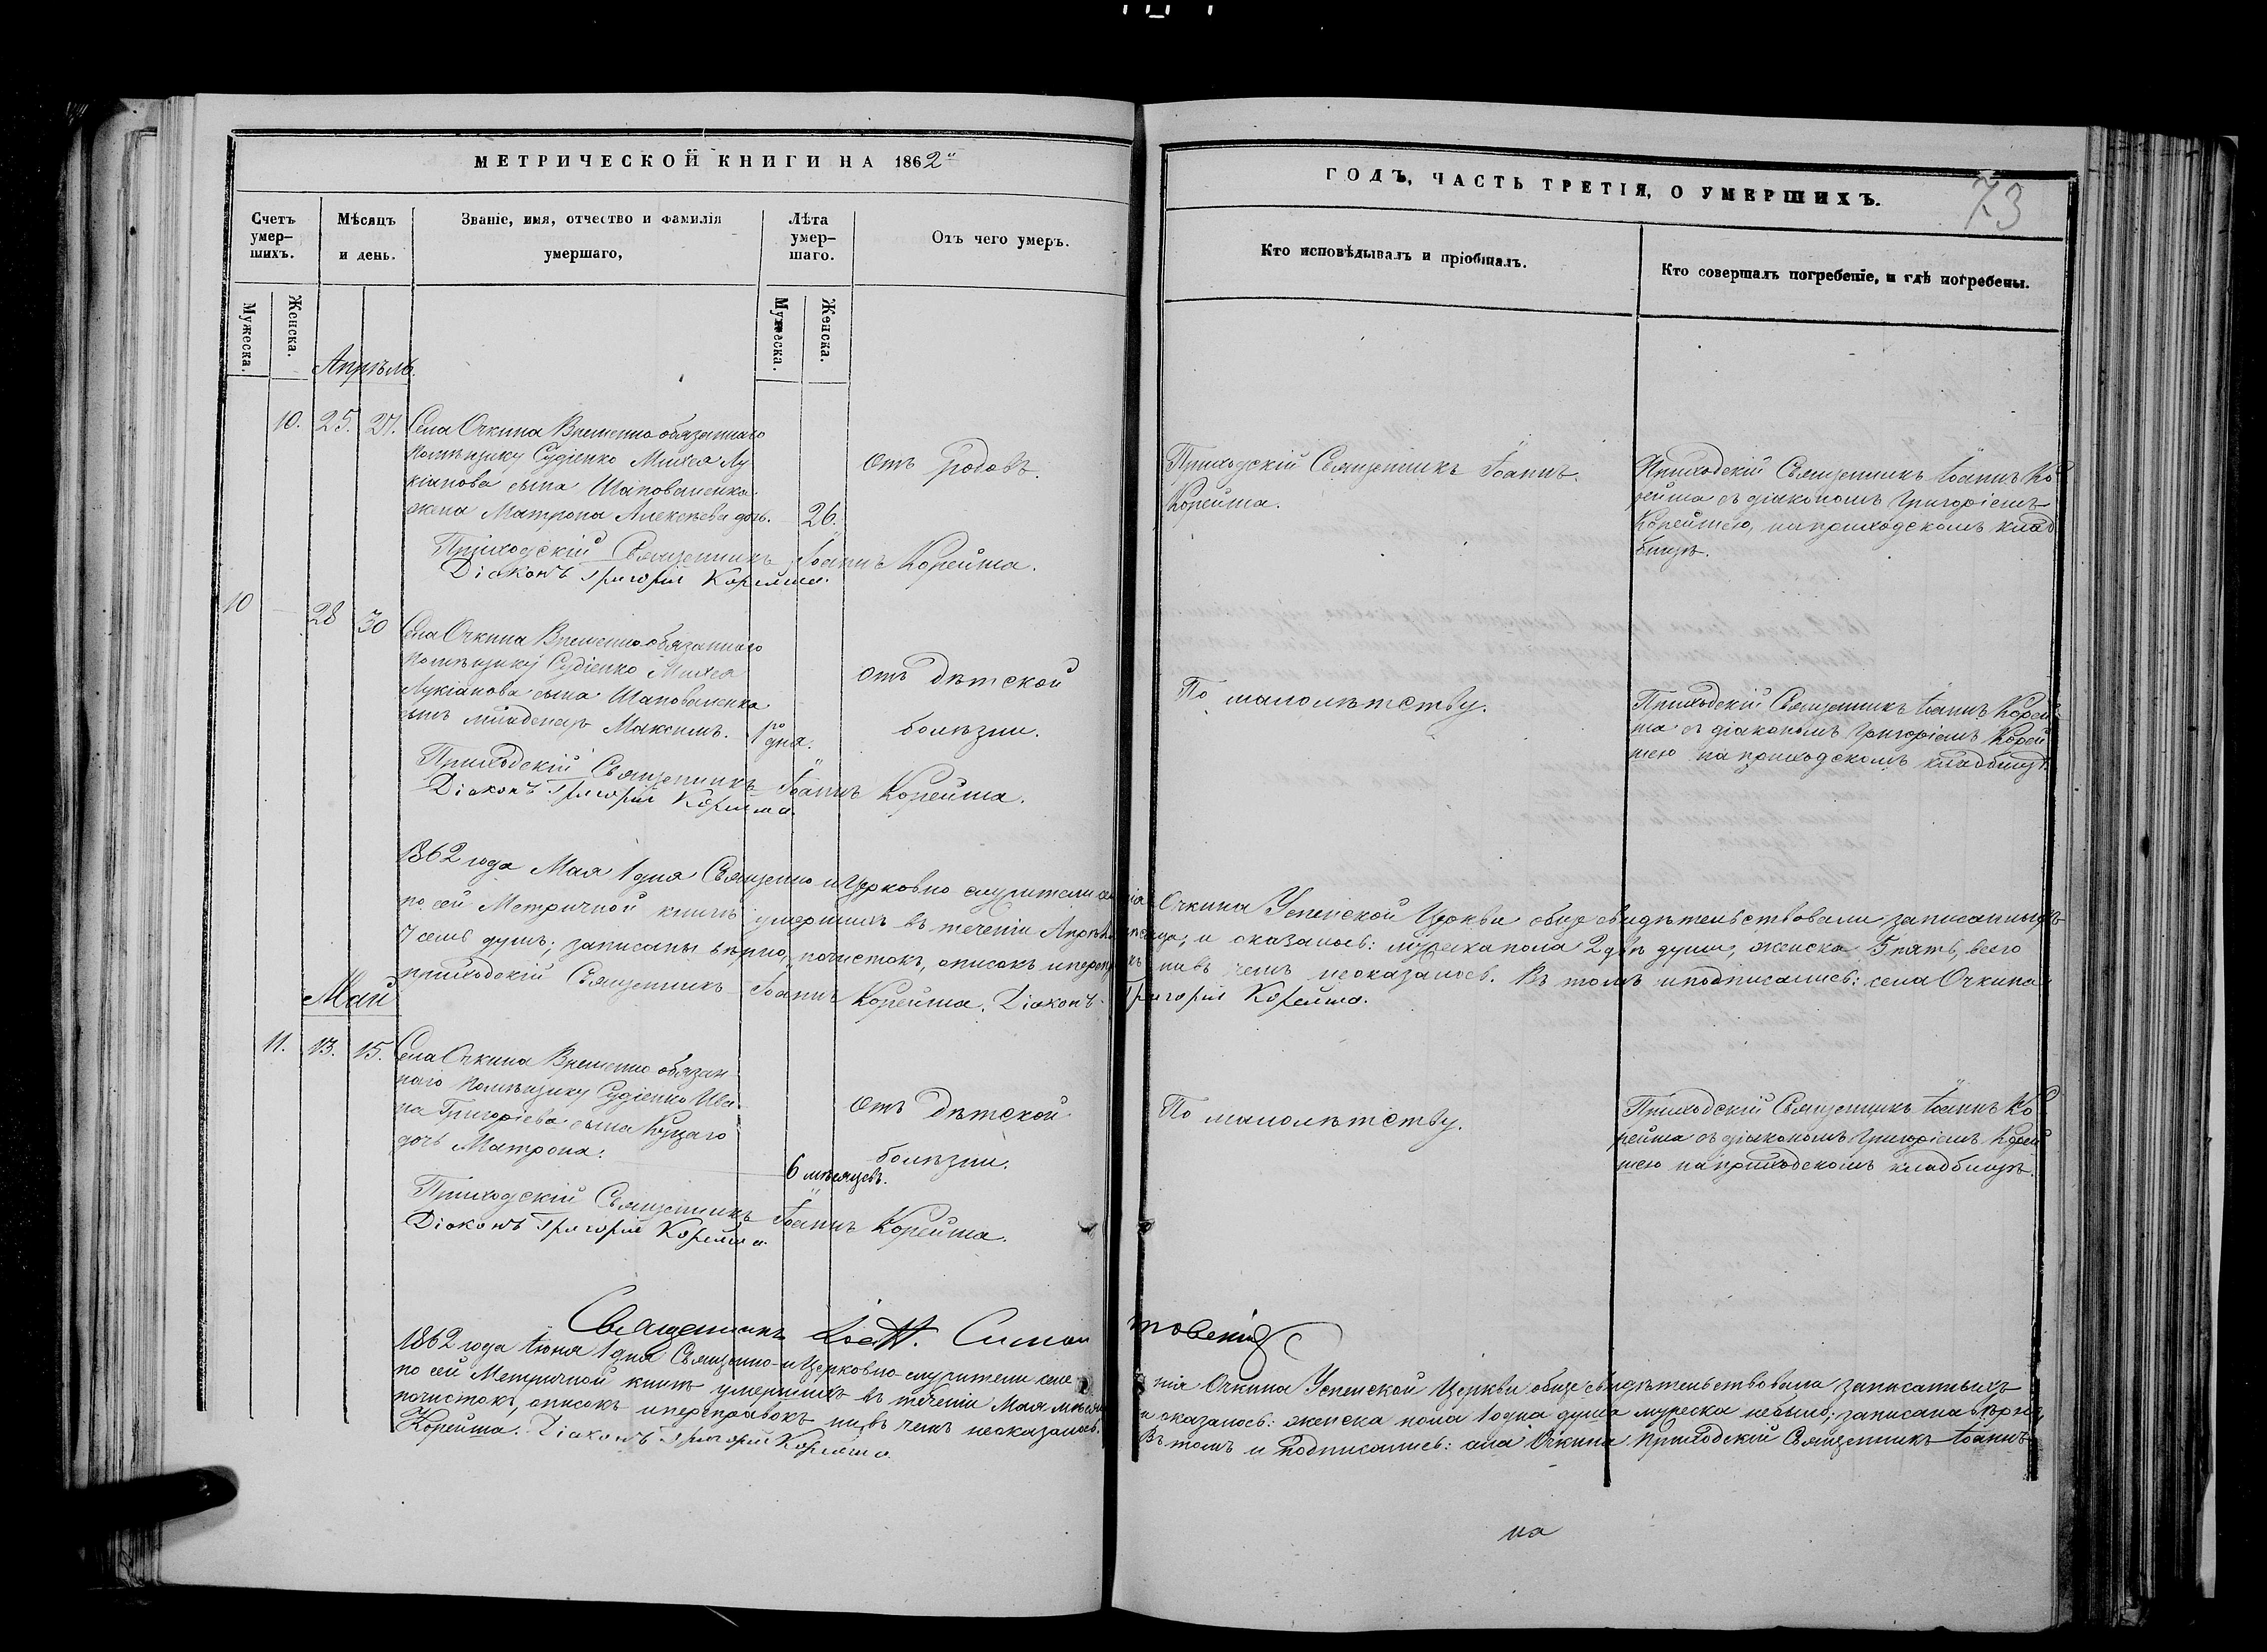 МЕТРИЧЕСКОЙ КНИГИ НА 1862й
ГОДЪ, ЧАСТЬ ТРЕТІЯ, О УМЕРШИХЪ.
73
Счетъ умер-шихъ.
Мѣсяцъ и день.
Званіе, имя, отчество и фамилія умершаго,
Лѣта умер-шаго.
Отъ чего умеръ.
Кто исповѣдывалъ и пріобщалъ.
Кто совершалъ погребеніе, и гдѣ погребены.
Мужеска.
Женска.
Мужеска.
Женска.
Апрѣль.
10. 25. 27. Села Очкина Временно обязаннаго
помѣщику Судіенко Михея Лу
кіанова сына Шаповаленка
жена Матрона Алексѣева дочь. 26.
отъ родовъ.
Приходскій Священникъ Іоаннъ
Корейша.
Приходскій Священникъ Іоаннъ Ко
рейша съ діакономъ Григоріемъ
Корейшею, на приходскомъ клад
бищѣ.
Приходскій Священникъ Іоаннъ Корейша.
Діаконъ Григорій Корейша.
10 28 30 Села Очкина Временно обязаннаго
помѣщику Судіенко Михея
Лукіанова сына Шаповаленка
сынъ младенецъ Максимъ. 1го дня.
отъ дѣтской
болѣзни.
По малолѣтству.
Приходскій Священникъ Іоаннъ Корей
ша съ діакономъ Григоріемъ Корей
шею на приходскомъ кладбищѣ.
Приходскій Священникъ Іоаннъ Корейша.
Діаконъ Григорій Корейша.
1862 года Мая 1 дня Священно и Церковно служители селенія Очкина Успенской Церкви обще свидѣтельствовали записанныхъ
по сей Метричной книгѣ умершихъ въ теченіи Апрѣля мѣсяца, и оказалось: мужеска пола 2 двѣ души, женска 5 пять, всего
7 семь душъ; записаны вѣрно, почистокъ, описокъ и переправокъ ни въ чемъ неоказалось. Въ томъ и подписались: села Очкина
приходскій Священникъ Іоаннъ Корейша. Діаконъ Григорій Корейша.
Май
11. 13. 15. Села Очкина Временно обязан
наго помѣщику Судіенко Ива
на Григорієва сына Куцаго
дочь Матрона. 6 мѣсяцевъ.
отъ дѣтской
болѣзни.
По малолѣтству.
Приходскій Священникъ Іоаннъ Ко
рейша съ діакономъ Григоріемъ Корей
шею на приходскомъ кладбищѣ.
Приходскій Священникъ Іоаннъ Корейша.
Діаконъ Григорій Корейша.
Священникъ
1862 года Іюня 1 дня Священно и Церковно служители селенія Очкина Успенской Церкви обще свидѣтельствовали записанныхъ
по сей Метричной книгѣ умершихъ въ теченіи Мая мѣсяца и оказалось: женска пола 1 одна душа мужеска небыло; записана вѣрно,
почистокъ, описокъ и переправокъ ни въ чемъ неоказалось. Въ томъ и подписались: села Очкина Приходскій Священникъ Іоаннъ
Корейша. Діаконъ Григорій Корейша.
на